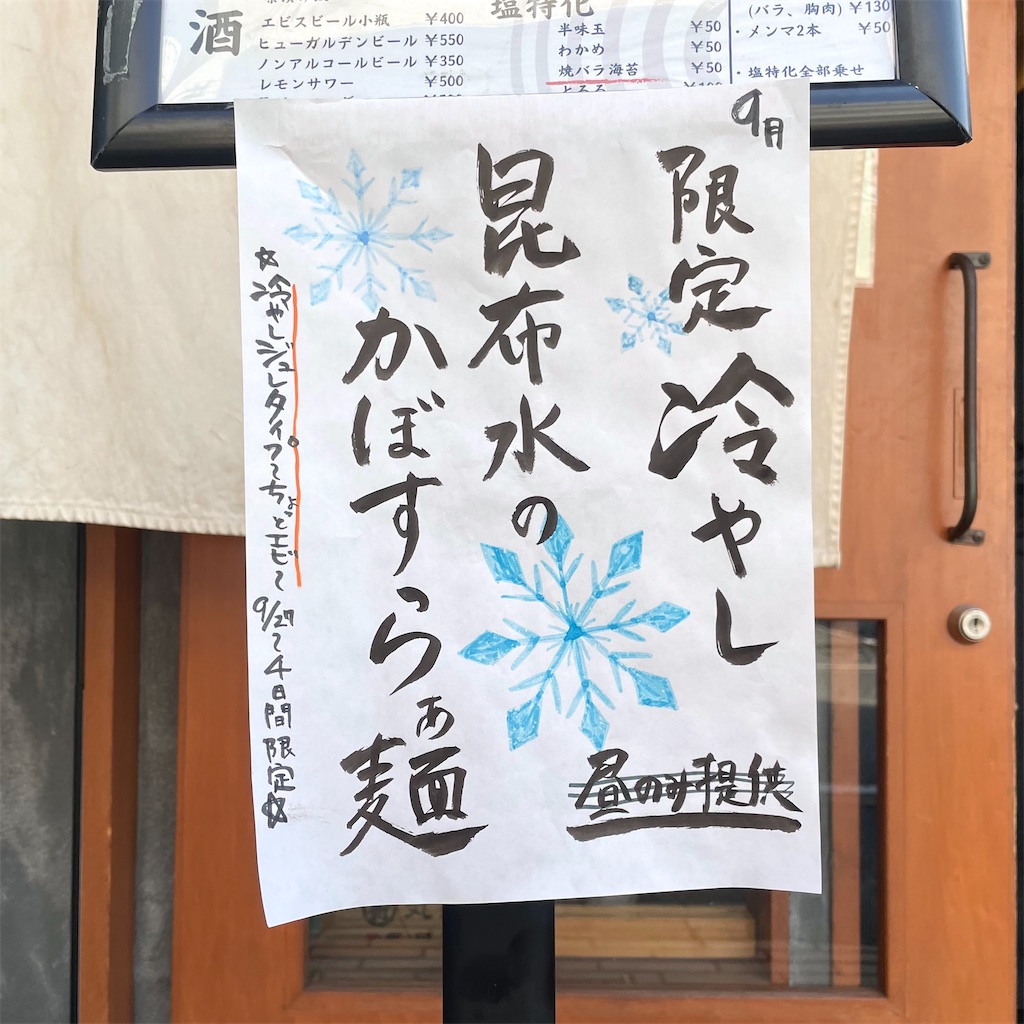 酒
エビスビール小瓶 ¥400
ヒューガルデンビール ¥550
ノンアルコールビール ¥350
レモンサワー ¥500
塩特化
半味玉 ¥50
わかめ ¥50
焼バラ海苔 ¥50
とろろ ¥100
(バラ、胸肉) ¥130
・メンマ2本 ¥50
・塩特化全部乗せ
9月
限定冷やし
昼のみ提供
昆布水の
かぼすらぁ麺
☆冷やしジュレタイプ〜ちょっとエビ〜 9/27〜4日間限定☆